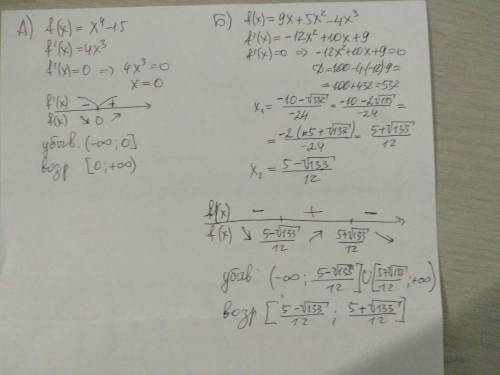 А) f(x) = x⁴-15
f'(x) = 4x³
f'(x) = 0 => 4x³=0
x=0
f'(x) - +
f(x) ↘ 0 ↗
убав. (-∞; 0]
возр [0; +∞)
Б) f(x) = 9x+5x²-4x³
f'(x) = -12x²+10x+9
f'(x)=0 => -12x²+10x+9=0
D=100-4·(-12)·9=
=100+432=532
x₁= (-10-√532)/-24 = (-10-2√133)/-24 =
= -2(5+√133)/-24 = (5+√133)/12
x₂ = (5-√133)/12
f'(x) - + -
f(x) ↘ (5-√133)/12 ↗ (5+√133)/12 ↘
убав. (-∞; (5-√133)/12] ∪ [(5+√133)/12; +∞)
возр [(5-√133)/12; (5+√133)/12]